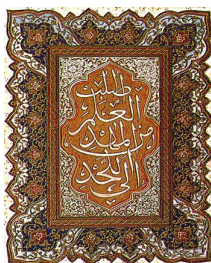 طلب
العلم
من المهد
الى اللحد